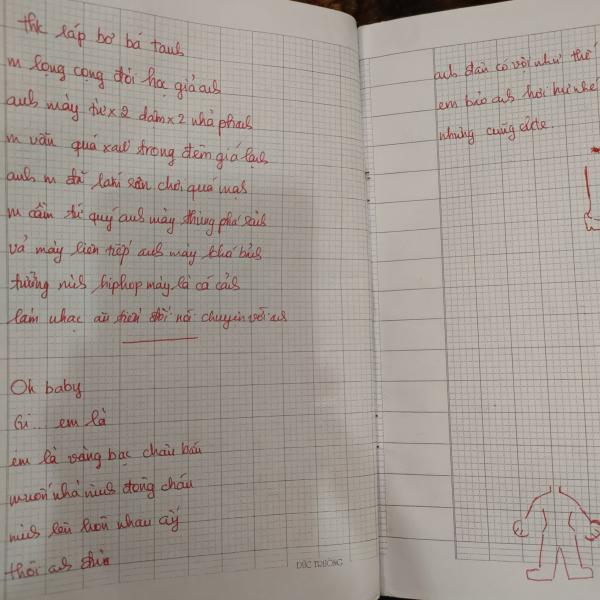 thk lấp bơ bá tanh
m long cọng đòi học giả anh
anh mày tư x 2 dâm x 2 nhà phanh
m vẫn quá xanh trong đêm giá lạnh
anh m đã sân chơi quá mạnh
m cầm tứ quý anh mày thùng phá sảnh
vả mày liên tiếp anh mày khá bảnh
tưởng mình hiphop mày là cá cảnh
làm nhạc âu tiến nói chuyện với anh
Oh baby
Gì... em là
em là vàng bạc châu báu
muốn nhà mình đông cháu
mình lên luôn nhau ấy
thôi anh
ĐỨC TRƯỜNG
anh đàn có vội như thế
em bảo anh hơi hư nhé
nhưng cũng cute.